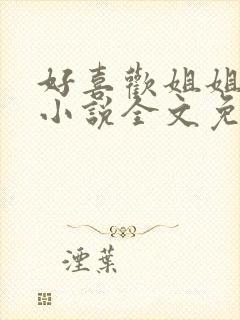 好喜歡姐姐
小說全文免
湮葉